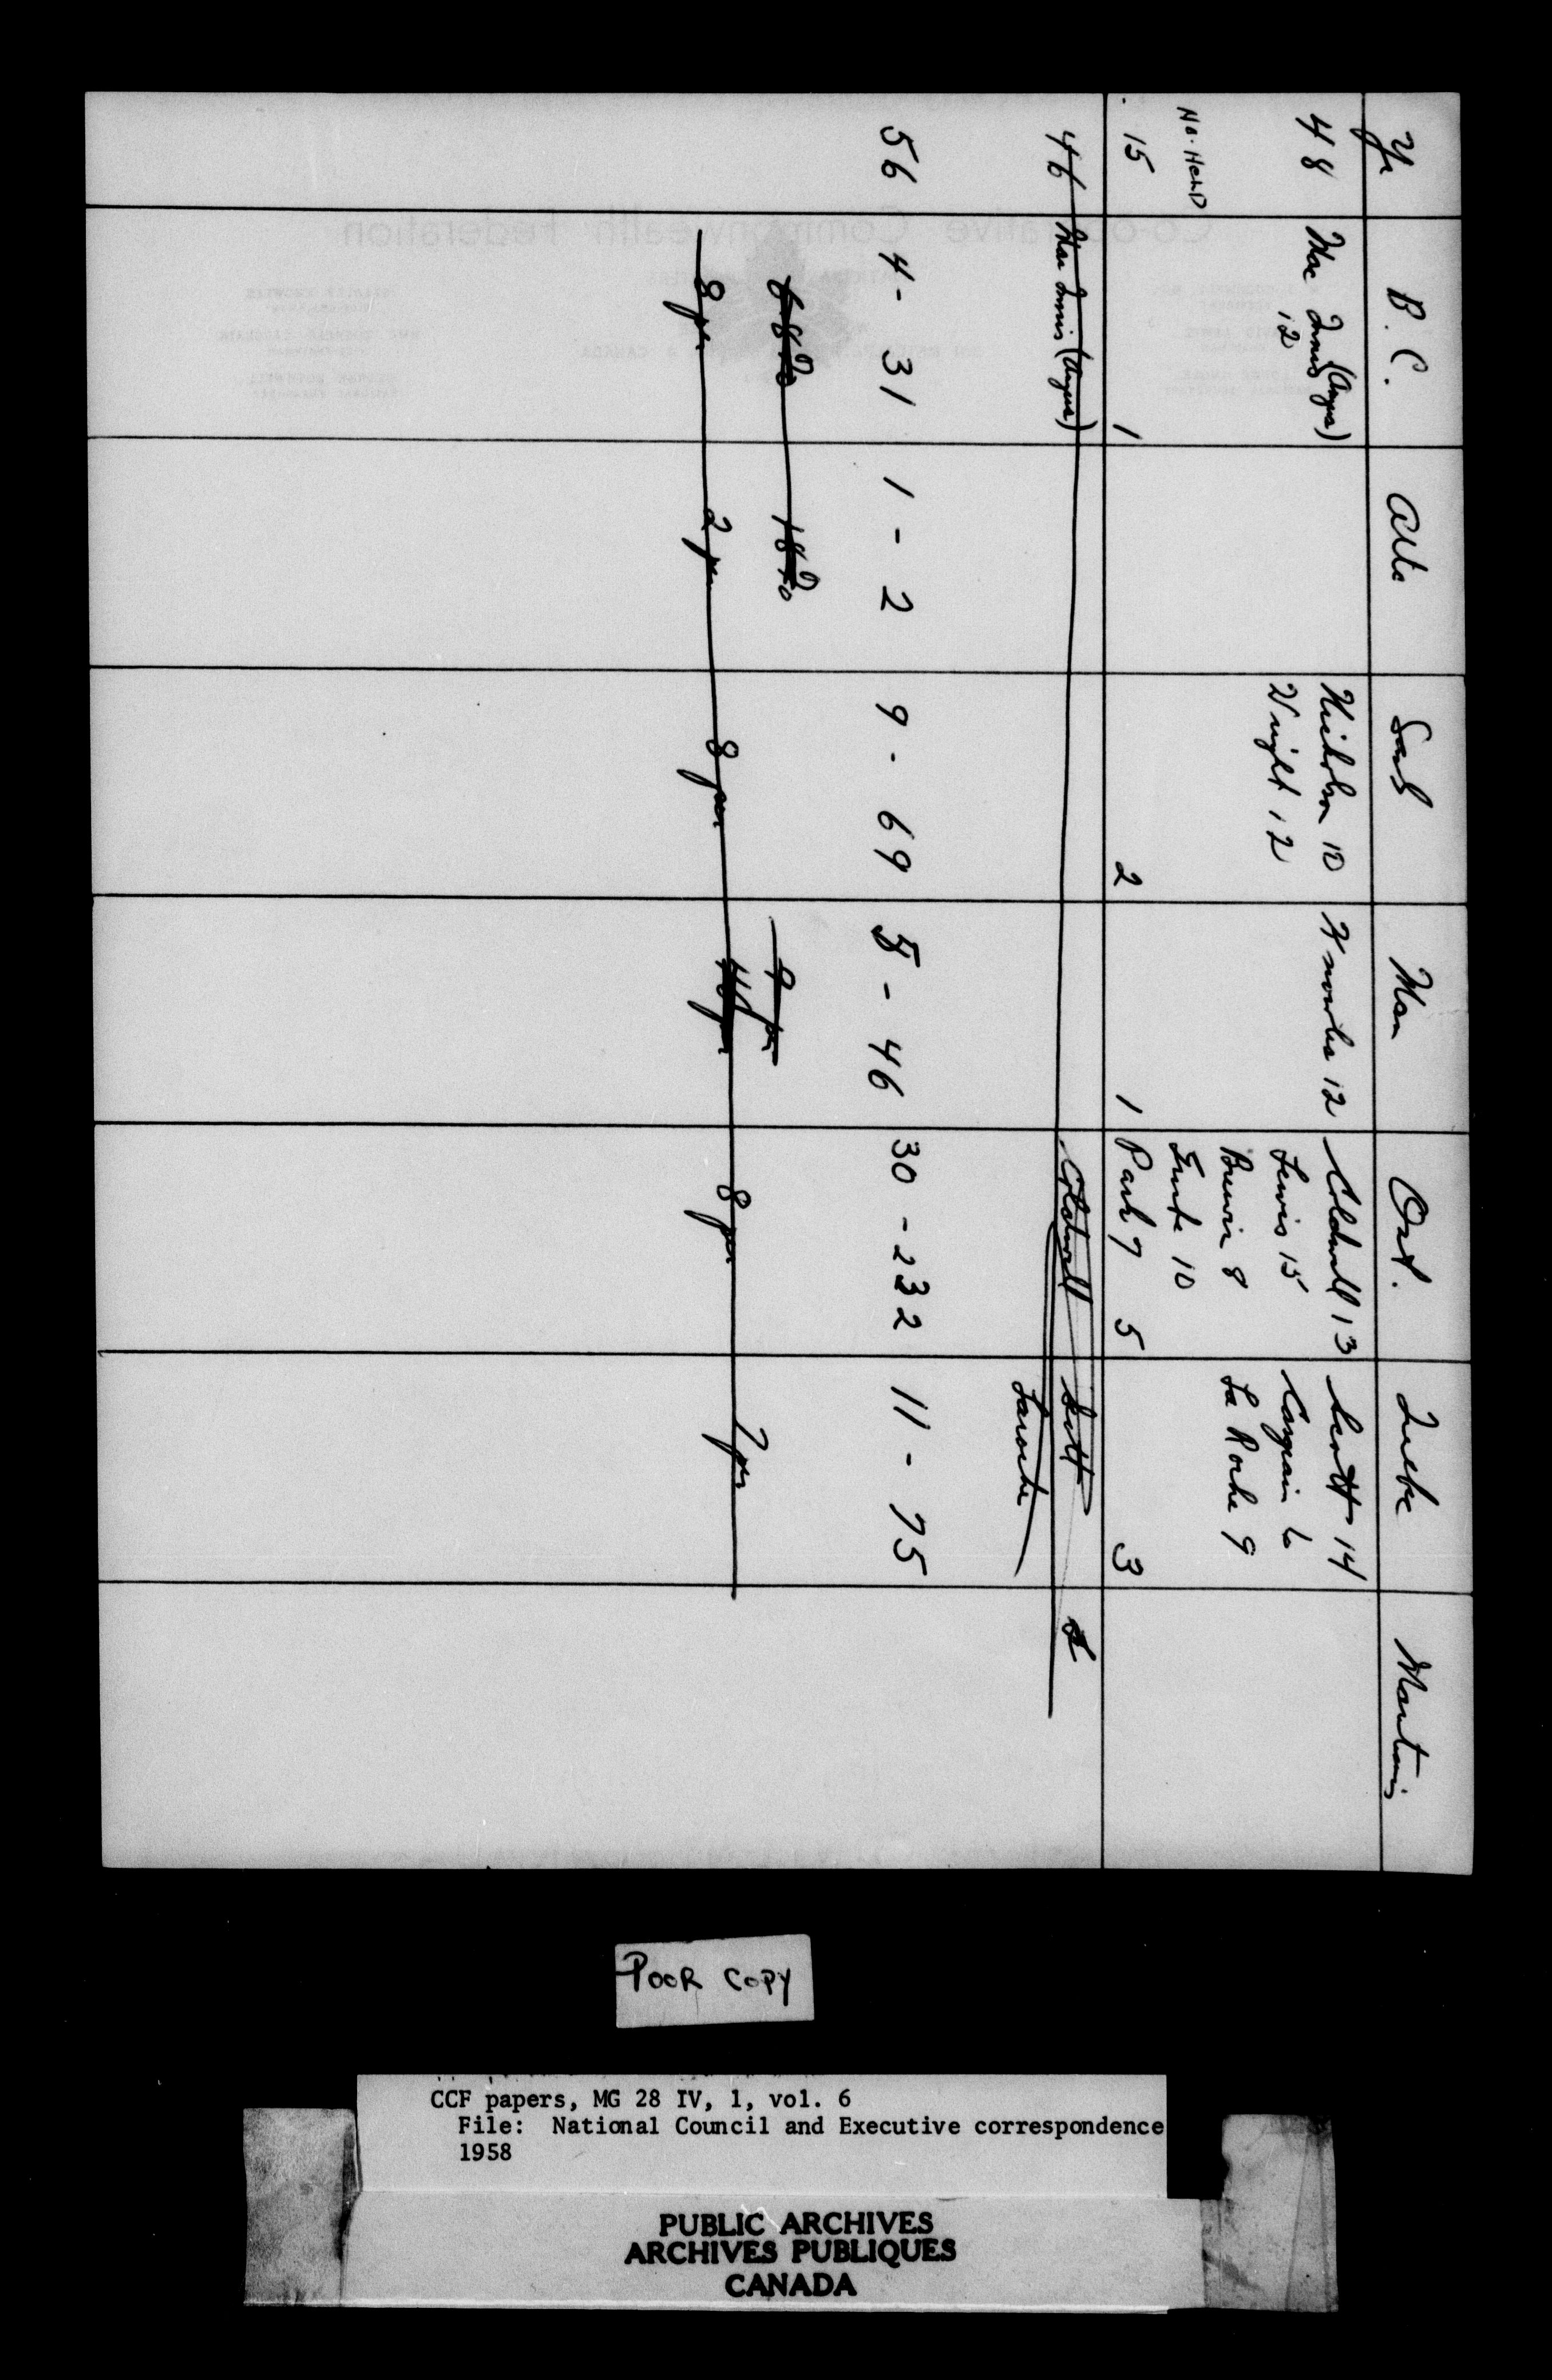 Yr B.C. Alta Sask Man Ont. Quebec Maritimes
48 Mac Innis (Angus) 12 Nicholson 10 Knowles 12 Coldwell 13 Scott 14
Wright 12 Lewis 15 Casgrain 6
Brewin 8 La Roche 9
No. Held Forte 10
15 1 2 1 Park 7 5 3
46 Mac Innis (Angus) Coldwell Scott
Laroche
56 4 - 31 1 - 2 9 - 69 5 - 46 30 - 232 11 - 75
9 yr
8 yr 2 yr 8 yr 8 yr 7 yr
Co-operative Commonwealth Federation
POOR COPY
CCF papers, MG 28 IV, 1, vol. 6
File: National Council and Executive correspondence
1958
PUBLIC ARCHIVES
ARCHIVES PUBLIQUES
CANADA